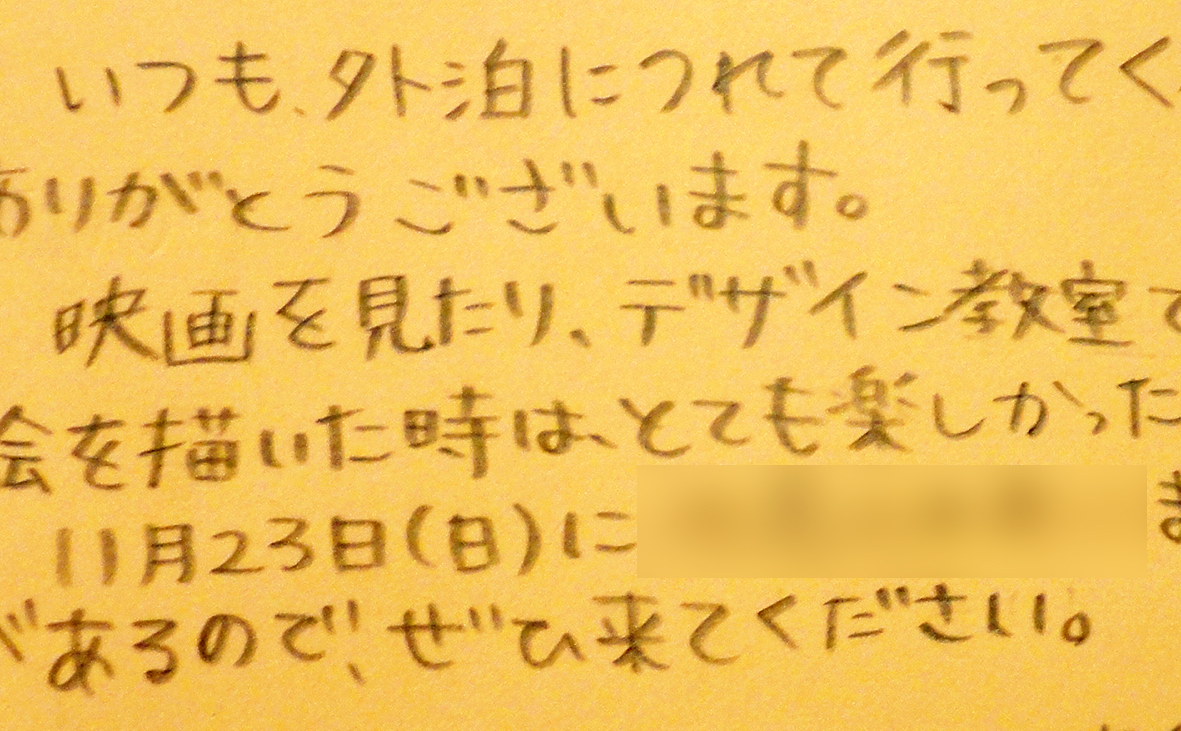 いつも、外泊につれて行ってく
ありがとうございます。
映画を見たり、デザイン教室で
絵を描いた時は、とても楽しかった
11月23日(日)に ま
があるので、ぜひ来てください。